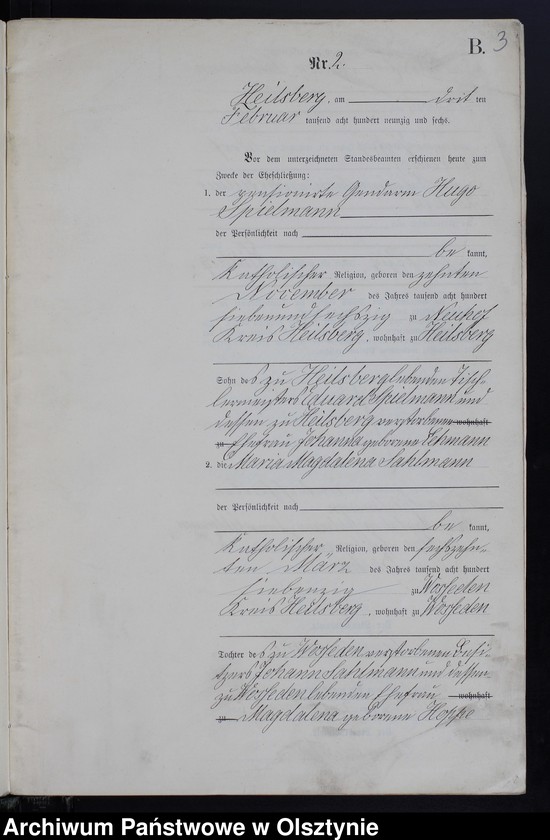 B. 3
Nr. 2.
Heilsberg, am drit ten
Februar tausend acht hundert neunzig und sechs.
Vor dem unterzeichneten Standesbeamten erschienen heute zum
Zwecke der Eheschließung:
1. der pensionirte Gendarm Hugo
Spielmann
der Persönlichkeit nach
be kannt,
katholischer Religion, geboren den zehnten
November des Jahres tausend acht hundert
siebenundsechszig zu Neuhof
Kreis Heilsberg, wohnhaft zu Heilsberg
Sohn des zu Heilsberg lebenden Tisch-
lermeisters Eduard Spielmann und
dessen zu Heilsberg verstorbenen wohnhaft
zu Ehefrau Johanna geborene Lehmann
2. die Maria Magdalena Sahlmann
der Persönlichkeit nach
be kannt,
katholischer Religion, geboren den sechszehn-
ten März des Jahres tausend acht hundert
siebenzig zu Wosseden
Kreis Heilsberg, wohnhaft zu Wosseden
Tochter des zu Wosseden verstorbenen Besi-
tzers Johann Sahlmann und dessen
zu Wosseden lebenden Ehefrau wohnhaft
zu Magdalena geborene Hoppe
Archiwum Państwowe w Olsztynie